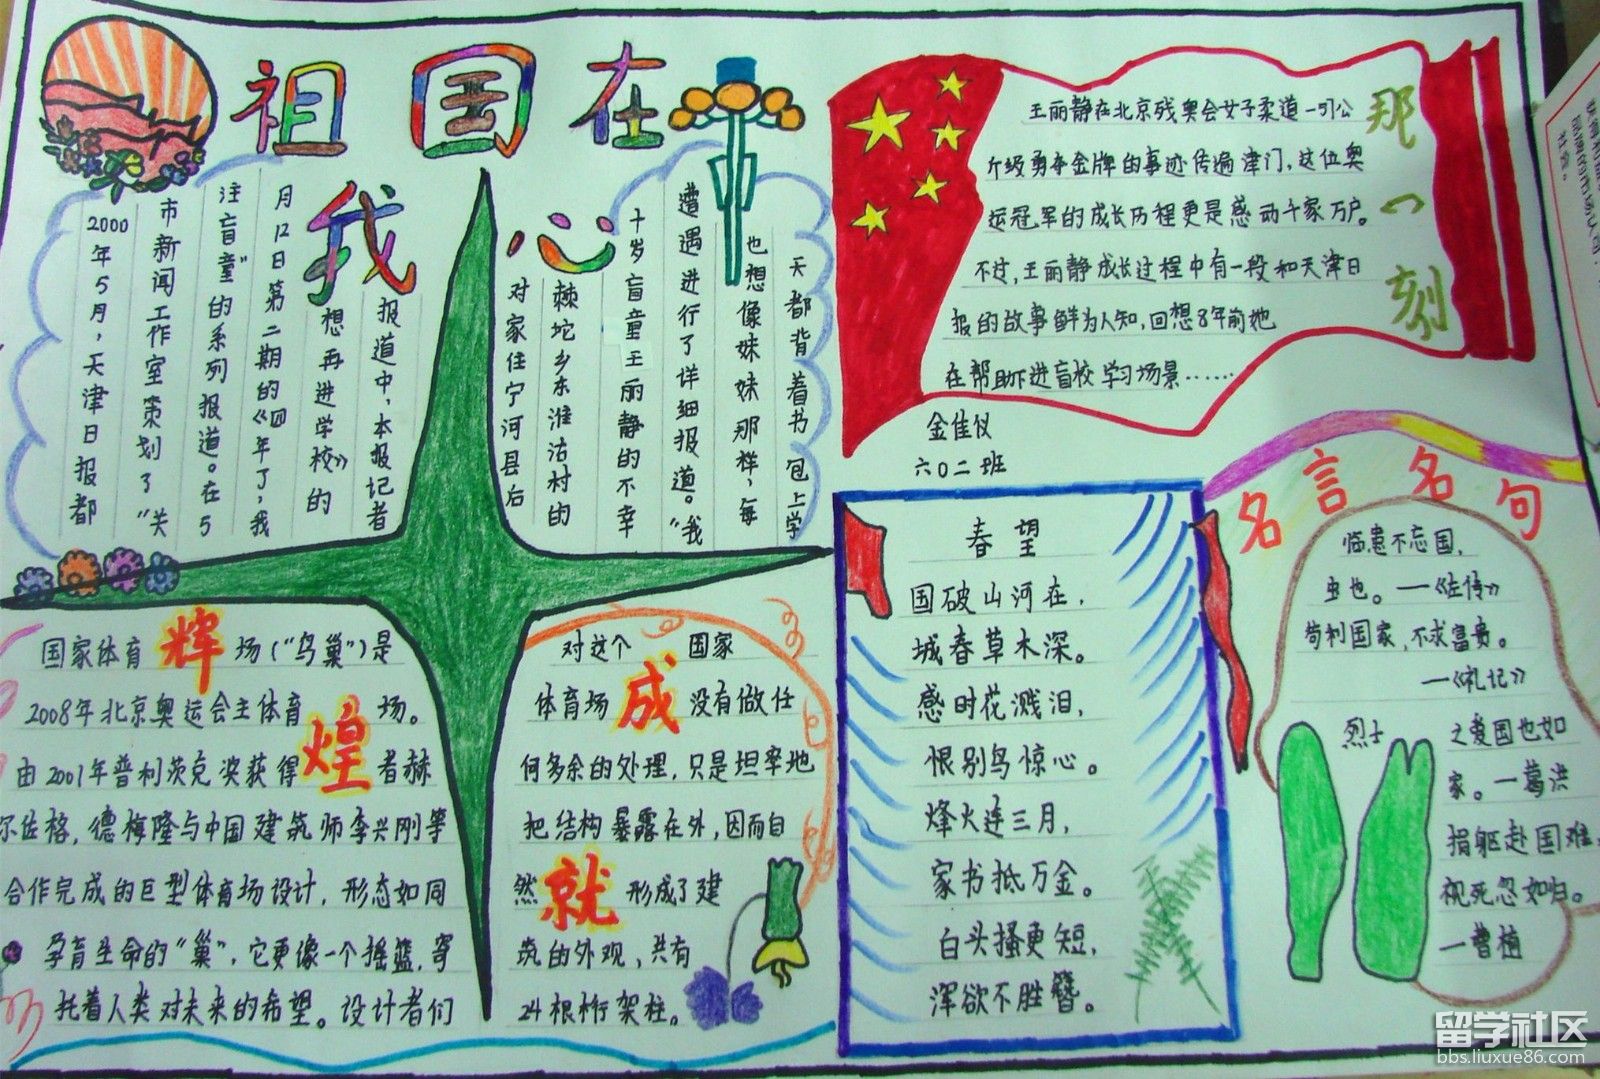 祖国在
我心
2000年5月，天津日报都
市新闻工作室策划了“关
注盲童”的系列报道。在5
月12日第二期的《四年了，我
想再进学校》的
报道中，本报记者
对家住宁河县后
棘坨乡东淮沽村的
十岁盲童王丽静的不幸
遭遇进行了详细报道。“我
也想像妹妹那样，每
天都背着书包上学
那一刻
王丽静在北京残奥会女子柔道
级勇夺金牌的事迹传遍津门，这位奥
运冠军的成长历程更是感动千家万户。
不过，王丽静成长过程中有一段和天津日
报的故事鲜为人知，回想8年前她
在帮助下进盲校学习场景……
金佳仪
六〇二班
辉煌
国家体育场（“鸟巢”）是
2008年北京奥运会主体育场。
由2001年普利茨克奖获得者赫
尔佐格，德梅隆与中国建筑师李兴刚等
合作完成的巨型体育场设计，形态如同
孕育生命的“巢”，它更像一个摇篮，寄
托着人类对未来的希望。设计者们
成就
对这个国家
体育场没有做任
何多余的处理，只是坦率地
把结构暴露在外，因而自
然形成了建
筑的外观，共有
24根桁架柱。
春望
国破山河在，
城春草木深。
感时花溅泪，
恨别鸟惊心。
烽火连三月，
家书抵万金。
白头搔更短，
浑欲不胜簪。
名言名句
临患不忘国，
也。—《左传》
苟利国家，不求富贵。
—《礼记》
烈士之爱国也如
家。—葛洪
捐躯赴国难，
视死忽如归。
—曹植
留学社区
bbs.liuxue86.com